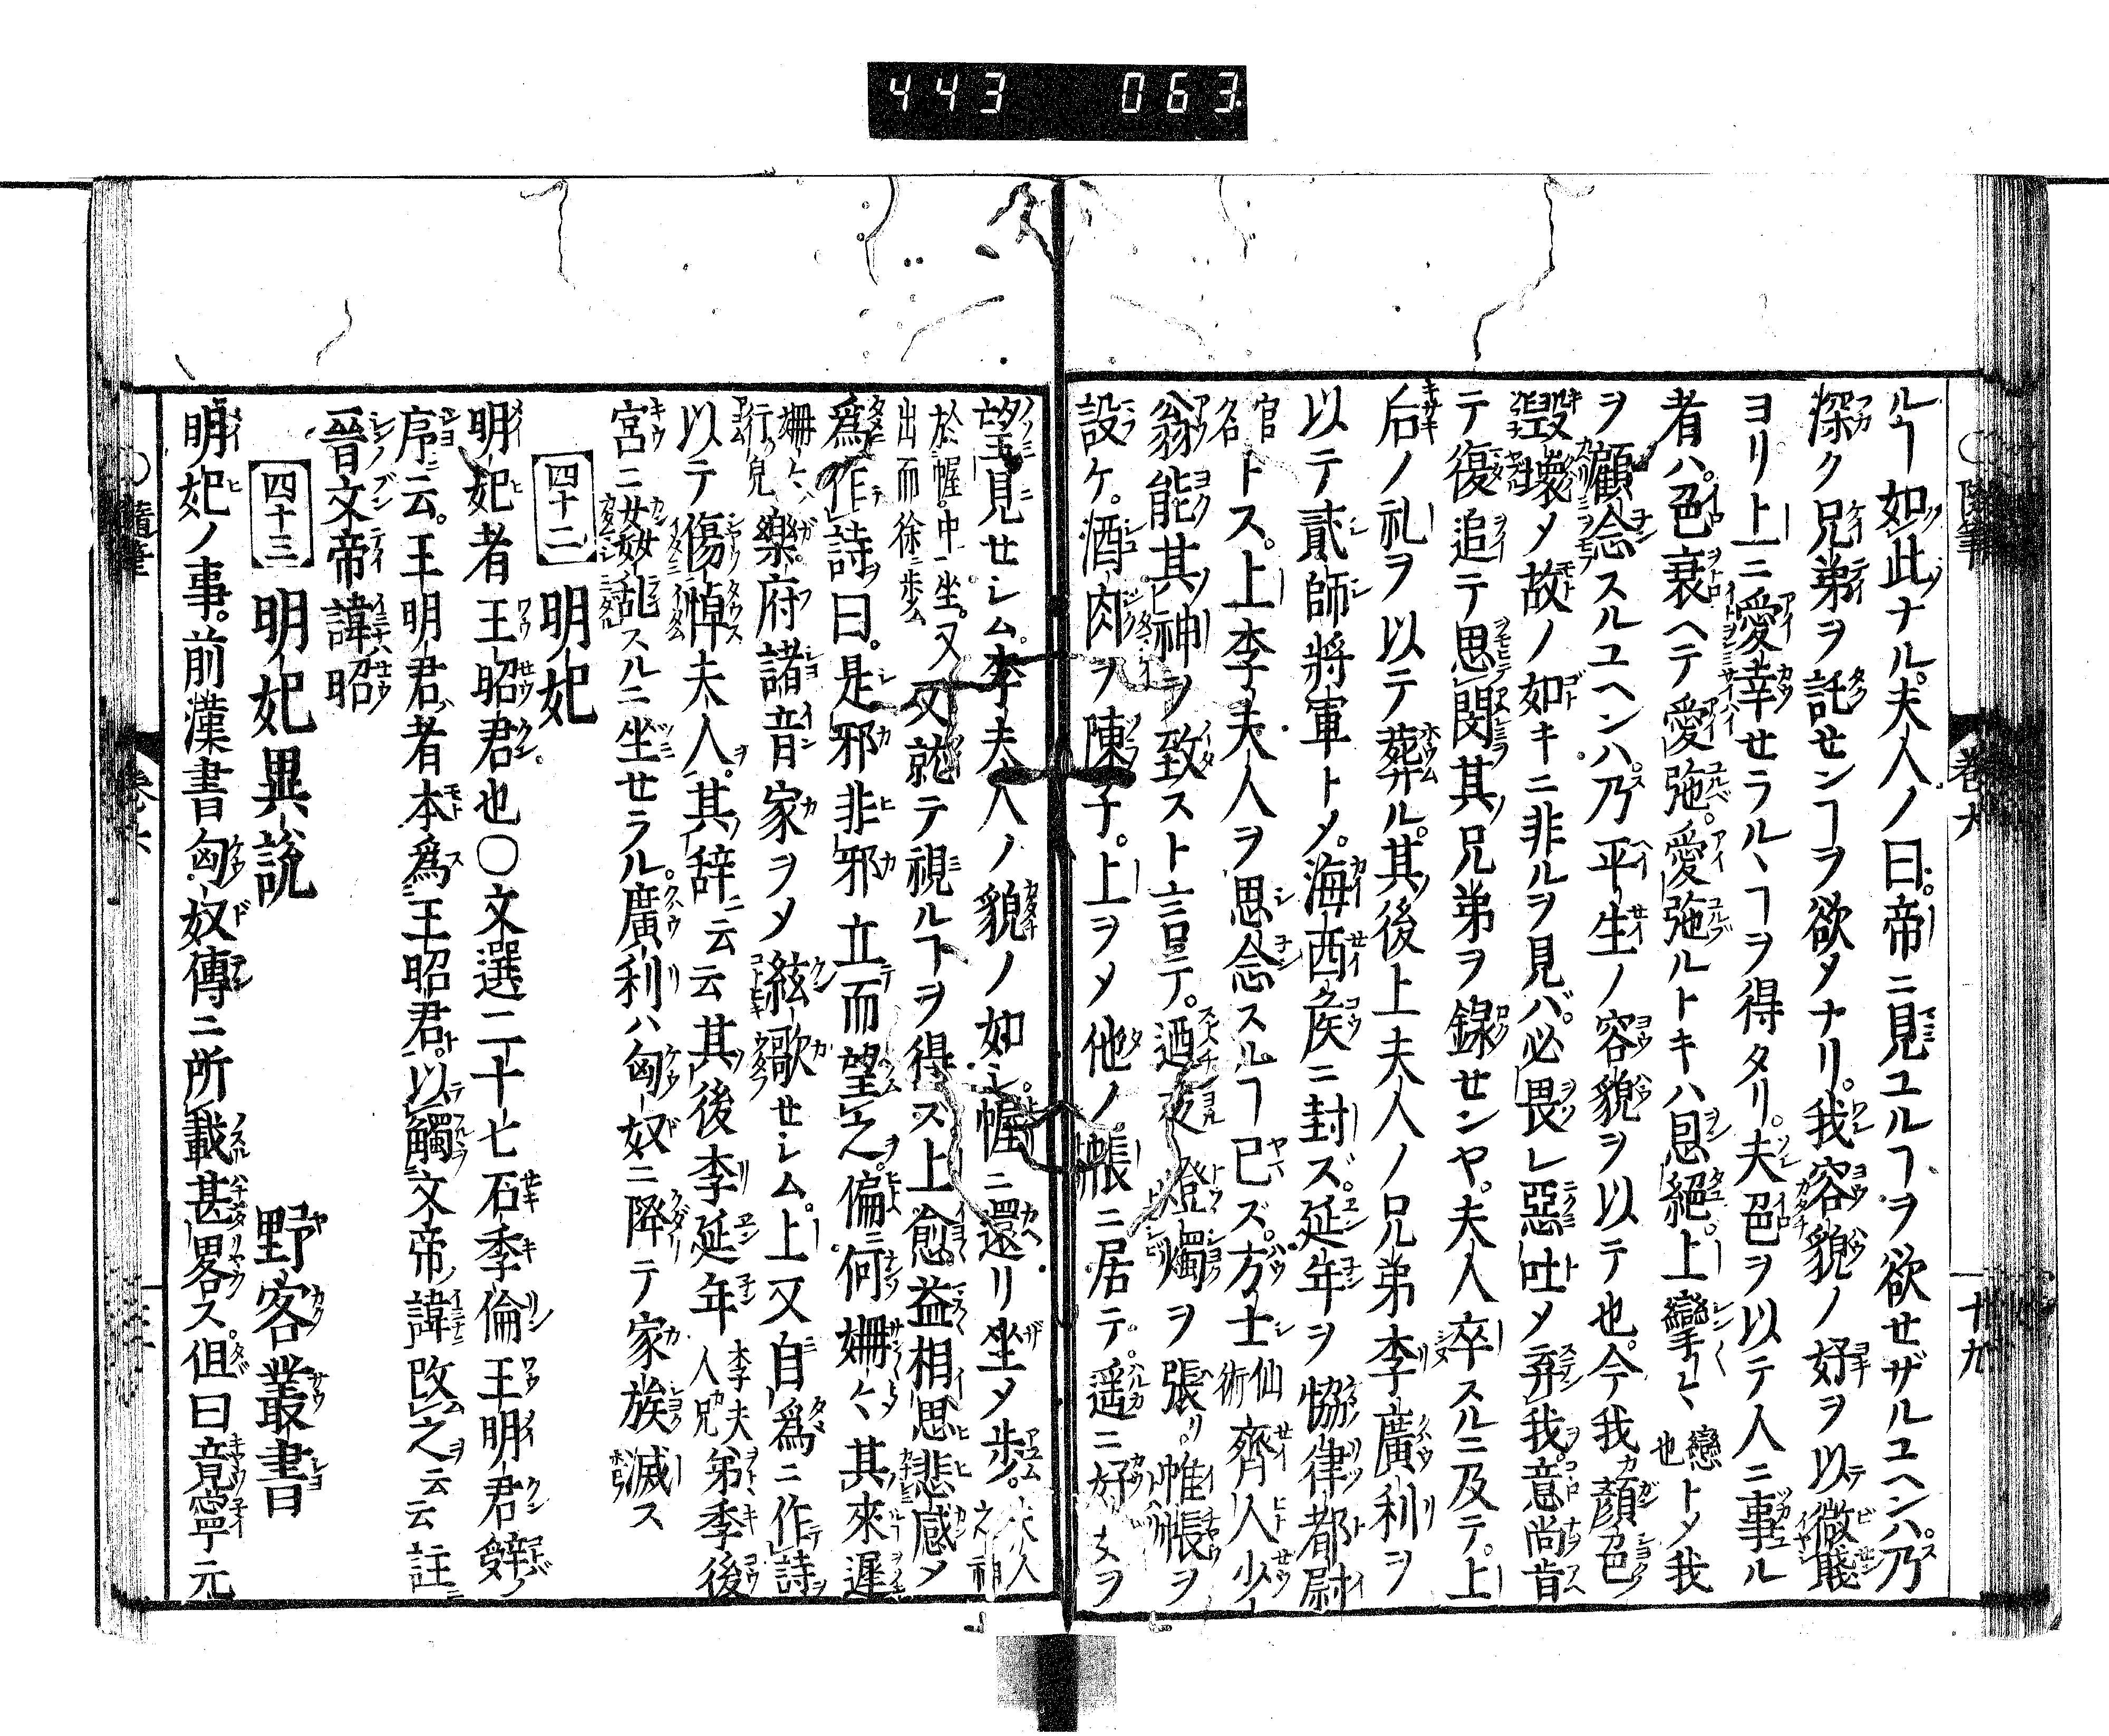 443 063
ルヿ如此ナル。夫人ノ曰。帝ニ見ユルヿヲ欲セザルユヘンハ乃
深ク兄弟ヲ託センヿヲ欲メナリ。我容貌ノ好ヲ以テ微賤
ヨリ上ニ愛幸セラルヽヿヲ得タリ。夫色ヲ以テ人ニ事ル
者ハ。色衰ヘテ愛弛。愛弛ルトキハ恩絕。上攣〻戀也トメ我
ヲ顧念スルユヘンハ。乃平生ノ容貌ヲ以テ也。今我カ顏色
毀壞メ故ノ如キニ非ルヲ見バ。必畏レ惡吐メ弃我。意尚肯
テ復追テ思閔其兄弟ヲ錄センヤ。夫人卒スルニ及テ。上
后ノ礼ヲ以テ葬ル。其後上夫人ノ兄弟李廣利ヲ
以テ貳師將軍トメ。海西侯ニ封ズ。延年ヲ協律都尉
官名トス。上李夫人ヲ思念スルヿ已ズ。方士仙術齊人少
翁能其神ヲ致スト言テ。廼夜燈燭ヲ張リ。帷帳ヲ
設ケ。酒肉ヲ陳子。上ヲメ他ノ帳ニ居テ。遥ニ好女ヲ
望見セシム。李夫人ノ貌ノ如シ。幄ニ還リ坐メ歩。
於幄中坐。又出而徐歩ム又就テ視ルヿヲ得ズ上愈益相思悲感メ
爲作詩曰。是邪非邪立而望之。偏何姍〻其來遲
姍〻行皃樂府諸音家ヲメ絃歌セシム。上又自爲ニ作詩
以テ傷悼夫人。其辞ニ云云其後李延年李夫人兄弟季後
宮ニ姦乱スルニ坐セラル。廣利ハ匈奴ニ降テ家族滅ス
四十二 明妃
明妃者王昭君也〇文選二十七石季倫王明君辭
序ニ云。王明君者本爲王昭君。以觸文帝諱改之云云註
晉文帝諱昭
四十三 明妃異説 野客叢書
明妃ノ事。前漢書匈奴傳ニ所載甚畧ス。但曰竟寧元